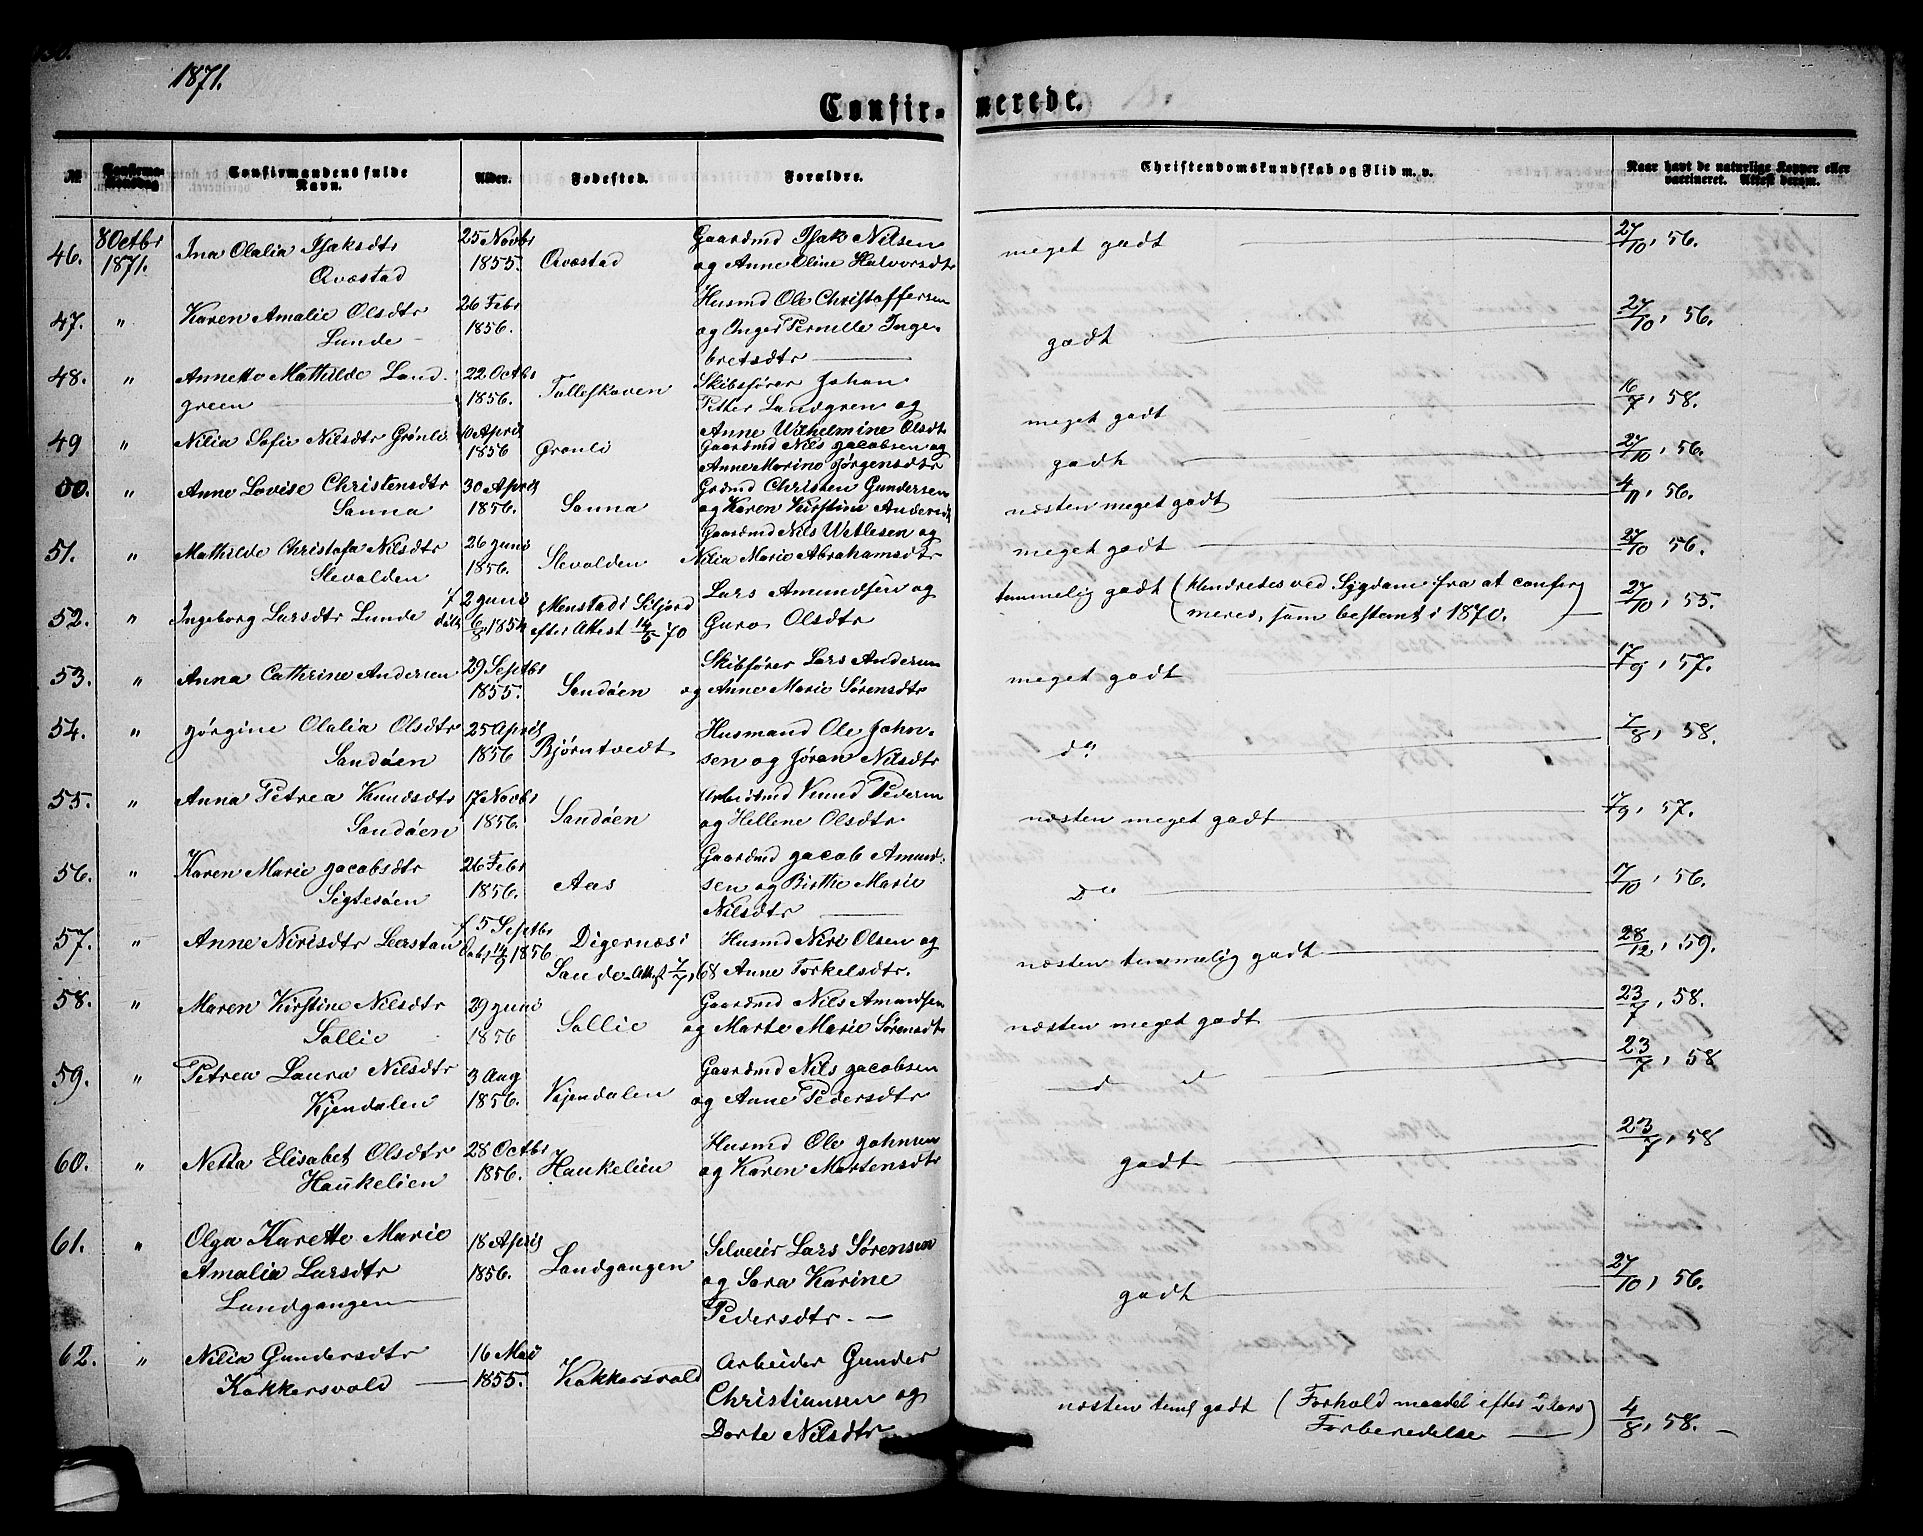 1871.
Confirmerede.
№ Confirmationsdag Confirmandens fulde Navn. Alder. Fødested. Forældre. Christendomskundskab og Flid m. v. Naar havt de naturlige Kopper eller vaccineret. Attest derom.
46. 8 Octbr 1871. Ina Olalia Isaksdtr Qvæstad 25 Novbr 1855. Qvæstad Gaardmd Isak Nilsen og Anne Oline Halvorsdtr meget godt 27/10, 56.
47. " Karen Amalie Olsdtr Lunde 26 Febr 1856. Husmd Ole Christoffersen og Inger Pernille Ingebretsdtr godt 27/10, 56.
48. " Annette Mathilde Landgreen 22 Octbr 1856. Tallefskaven Skibsfører Johan Petter Landgren og Anne Wilhelmine Olsdt meget godt 16/7, 58.
49 " Nilia Sofie Nilsdtr Grønli 10 April 1856 Grønli Gaardmd Nils Jacobsen og Anne Marine Jørgensdtr godt 27/10, 56.
50. " Anne Lovise Christensdtr Sanna 30 April 1856. Sanna Grdmd Christen Gundersen og Karen Kirstine Andersd næsten meget godt 4/11, 56.
51. " Mathilde Christofa Nilsdtr Slevolden 26 Juni 1856. Slevolden Gaardmd Nils Wetlesen og Nilia Marie Abrahamsdtr meget godt 27/10 56.
52. " Ingeborg Larsdtr Lunde f 2 Juni døbt 6/8 1854 Menstad i Siljord efter Attest 14/5 70 Lars Amundsen og Guro Olsdtr temmelig godt (hindredes ved Sygdom fra at confirmeres, som bestemt i 1870.) 27/10, 55.
53. " Anna Cathrine Andersen 29 Septbr 1855. Sandøen Skibsfører Lars Andersen og Anne Marie Sørensdtr meget godt 17/9, 57.
54. " Jørgine Olalia Olsdtr Sandøen 25 April 1856 Bjørntvedt Husmand Ole Johnsen og Jøran Nilsdtr do 7/8, 58.
55. " Anna Petrea Knudsdtr Sandøen 17 Novbr 1856. Sandøen Arbeidsmd Knud Pedersen og Hellene Olsdtr næsten meget godt 17/9, 57.
56. " Karen Marie Jacobsdtr Sigtesøen 26 Febr 1856. Aas Gaardmd Jacob Amundsen og Birthe Marie Nilsdtr Do 7/10, 56.
57. " Anne Nirisdtr Leerstan f 5 Septbr Døbt 14/9 1856 Digernæs i Sande Attest 7/7, 68 Husmd Niri Olsen og Anne Torkelsdtr. næsten temmelig godt 28/12, 59.
58. " Maren Kirstine Nilsdtr Sollie 29 Juni 1856 Sollie Gaardmd Nils Amundsen og Marte Marie Sørensdt næsten meget godt 23/7, 58.
59. " Petrea Laura Nilsdtr Kjendalen 3 Aug 1856. Kjendalen Gaardmd Nils Jacobsen og Anne Pedersdtr d d 23/7, 58
60. " Netta Elisabet Olsdtr Haukelien 28 Octbr 1856. Haukelien Husmd Ole Johnsen og Karen Mortensdtr godt 23/7, 58
61. " Olga Karette Marie Amalia Larsdtr Landgangen 18 April 1856. Landgangen Selveier Lars Sørensen og Sara Karine Pedersdtr. godt 27/10, 56.
62. " Nilia Gundersdtr Kokkersvold 16 Mai 1855. Kokkersvold Arbeider Gunder Christiansen og Dorte Nilsdtr næsten teml godt (Forhold maadel. efter 2 Aars Forberedelse) 4/8, 58.